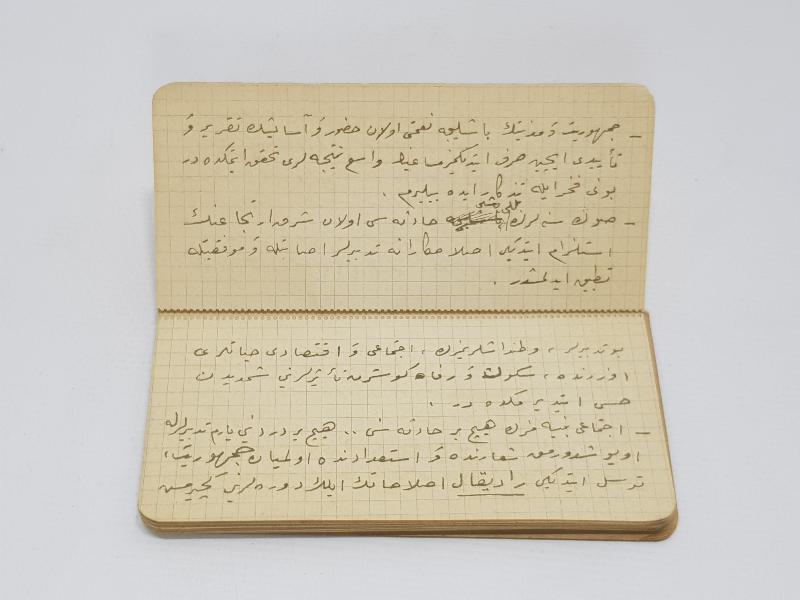 – جمهوریت و مدنیتك باشلیجه نعمتی اولان حضور و آسایشك تقریر و
تأییدی ایچین صرف ایتدیكمز مساعینك واسع نتیجه لری تحقق ایتمكده در
بونی فخر ایله تذكار ایده بیلیرم .
– صوك سنه لرك مللی حادثه سی اولان شرق ارتجاعنك
استلزام ایتدیكی اصلاحكارانه تدبیرلر اصابتله و موفقیتله
تطبیق ایدلمشدر .
بو تدبیرلر ، وطنداشلریمزك ، اجتماعی و اقتصادی حیاتلری
اوزرنده ، سكون و رفاه كوسترن تأثیرلرنی شمدیدن
حس ایتدیرمكده در .
– اجتماعی بنیه مزك هیچ بر حادثه سی .. هیچ بر دردنی یارم تدبیرلرله
اویوشدورمق شعارنده و استعدادنده اولمیان جمهوریت ،
توسل ایتدیكی رادیقال اصلاحاتك ایلك دوره لرینی كچیرمش